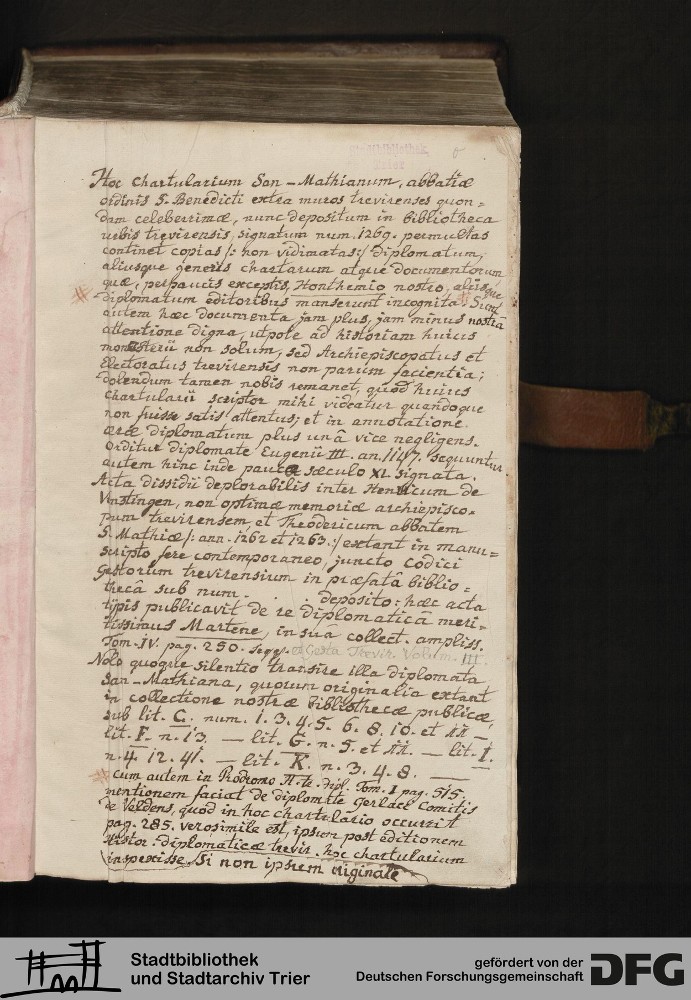 Stadtbibliothek
Trier
Hoc chartularium San-Mathianum, abbatiæ
ordinis S. Benedicti extra muros trevirenses quon=
dam celeberrimæ, nunc depositum in bibliotheca
urbis trevirensis, signatum num. 1269. permultas
continet copias /: non vidimatas :/ diplomatum,
aliusque generis chartarum atque documentorum
quæ, perpaucis exceptis, Honthemio nostro, aliisque
diplomatum editoribus manserunt incognita. Sunt
autem hæc documenta jam plus, jam minus nostrâ
attentione digna, utpote ad historiam huius
monasterii non solum, sed Archiepiscopatus et
Electoratus trevirensis non parum facientia;
dolendum tamen nobis remanet, quod huius
chartularii scriptor mihi videatur quandoque
non fuisse satis attentus; et in annotatione
æræ diplomatum plus unâ vice negligens.
Orditur diplomate Eugenii III. an. 1147. sequuntur
autem hinc inde pauca sæculo XI. signata.
Acta dissidii deplorabilis inter Henricum de
Vinstingen, non optimæ memoriæ archiepisco=
pum trevirensem, et Theodericum abbatem
S. Mathiæ /: ann. 1262 et 1263 :/ extant in manu=
scripto fere contemporaneo, juncto codici
Gestorum trevirensium in præfatâ biblio=
thecâ sub num. . . . deposito: hæc acta
typis publicavit de re diplomaticâ meri=
tissimus Martene, in suâ collect. ampliss.
Tom. IV. pag. 250. seqq. et Gesta Trevir. Volum. III.
Nolo quoque silentio transire illa diplomata
San-Mathiana, quorum originalia extant
in collectione nostræ bibliothecæ publicæ,
sub lit. C. num. 1. 3. 4. 5. 6. 8. 10. et 11 —
lit. F. n. 13. — lit. G. n. 5. et 11. — lit. I.
n. 4. 12. 41. — lit. K. n. 3. 4. 8. —
cum autem in Prodromo H. te. dipl. Tom. I pag. 515.
mentionem faciat de diplomate Gerlaci Comitis
de Veldens, quod in hoc chartulario occurrit
pag. 285. verosimile est, ipsum post editionem
Histor. diplomaticæ trevir. hoc chartularium
inspexisse, si non ipsum originale
Stadtbibliothek
und Stadtarchiv Trier
gefördert von der
Deutschen Forschungsgemeinschaft
DFG